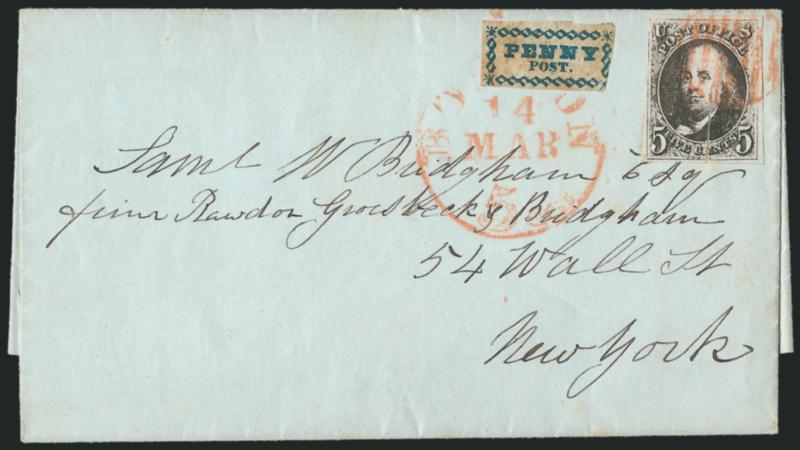 PENNY
POST.
U S
POST OFFICE
5 FIVE CENTS 5
BOSTON
14
MAR
Saml W Bridgham Esq
firm Rawdon Groesbeck & Bridgham
54 Wall St
New York